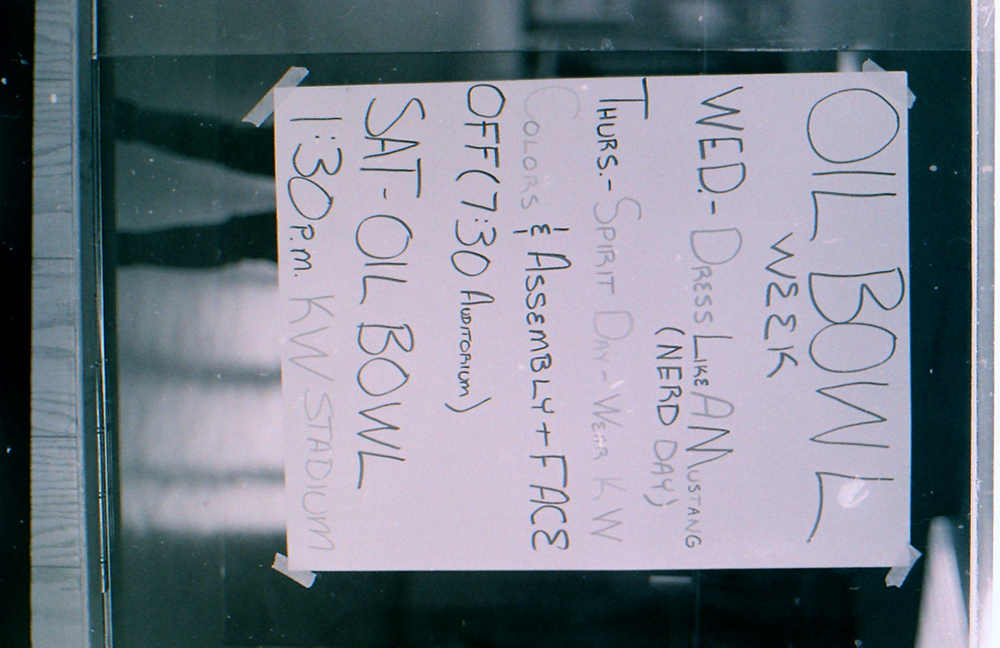 OIL BOWL
WEEK
WED.- DRESS LIKE A MUSTANG
(NERD DAY)
THURS.- SPIRIT DAY - WEAR KW
COLORS & ASSEMBLY + FACE
OFF (7:30 AUDITORIUM)
SAT- OIL BOWL
1:30 P.M. KW STADIUM